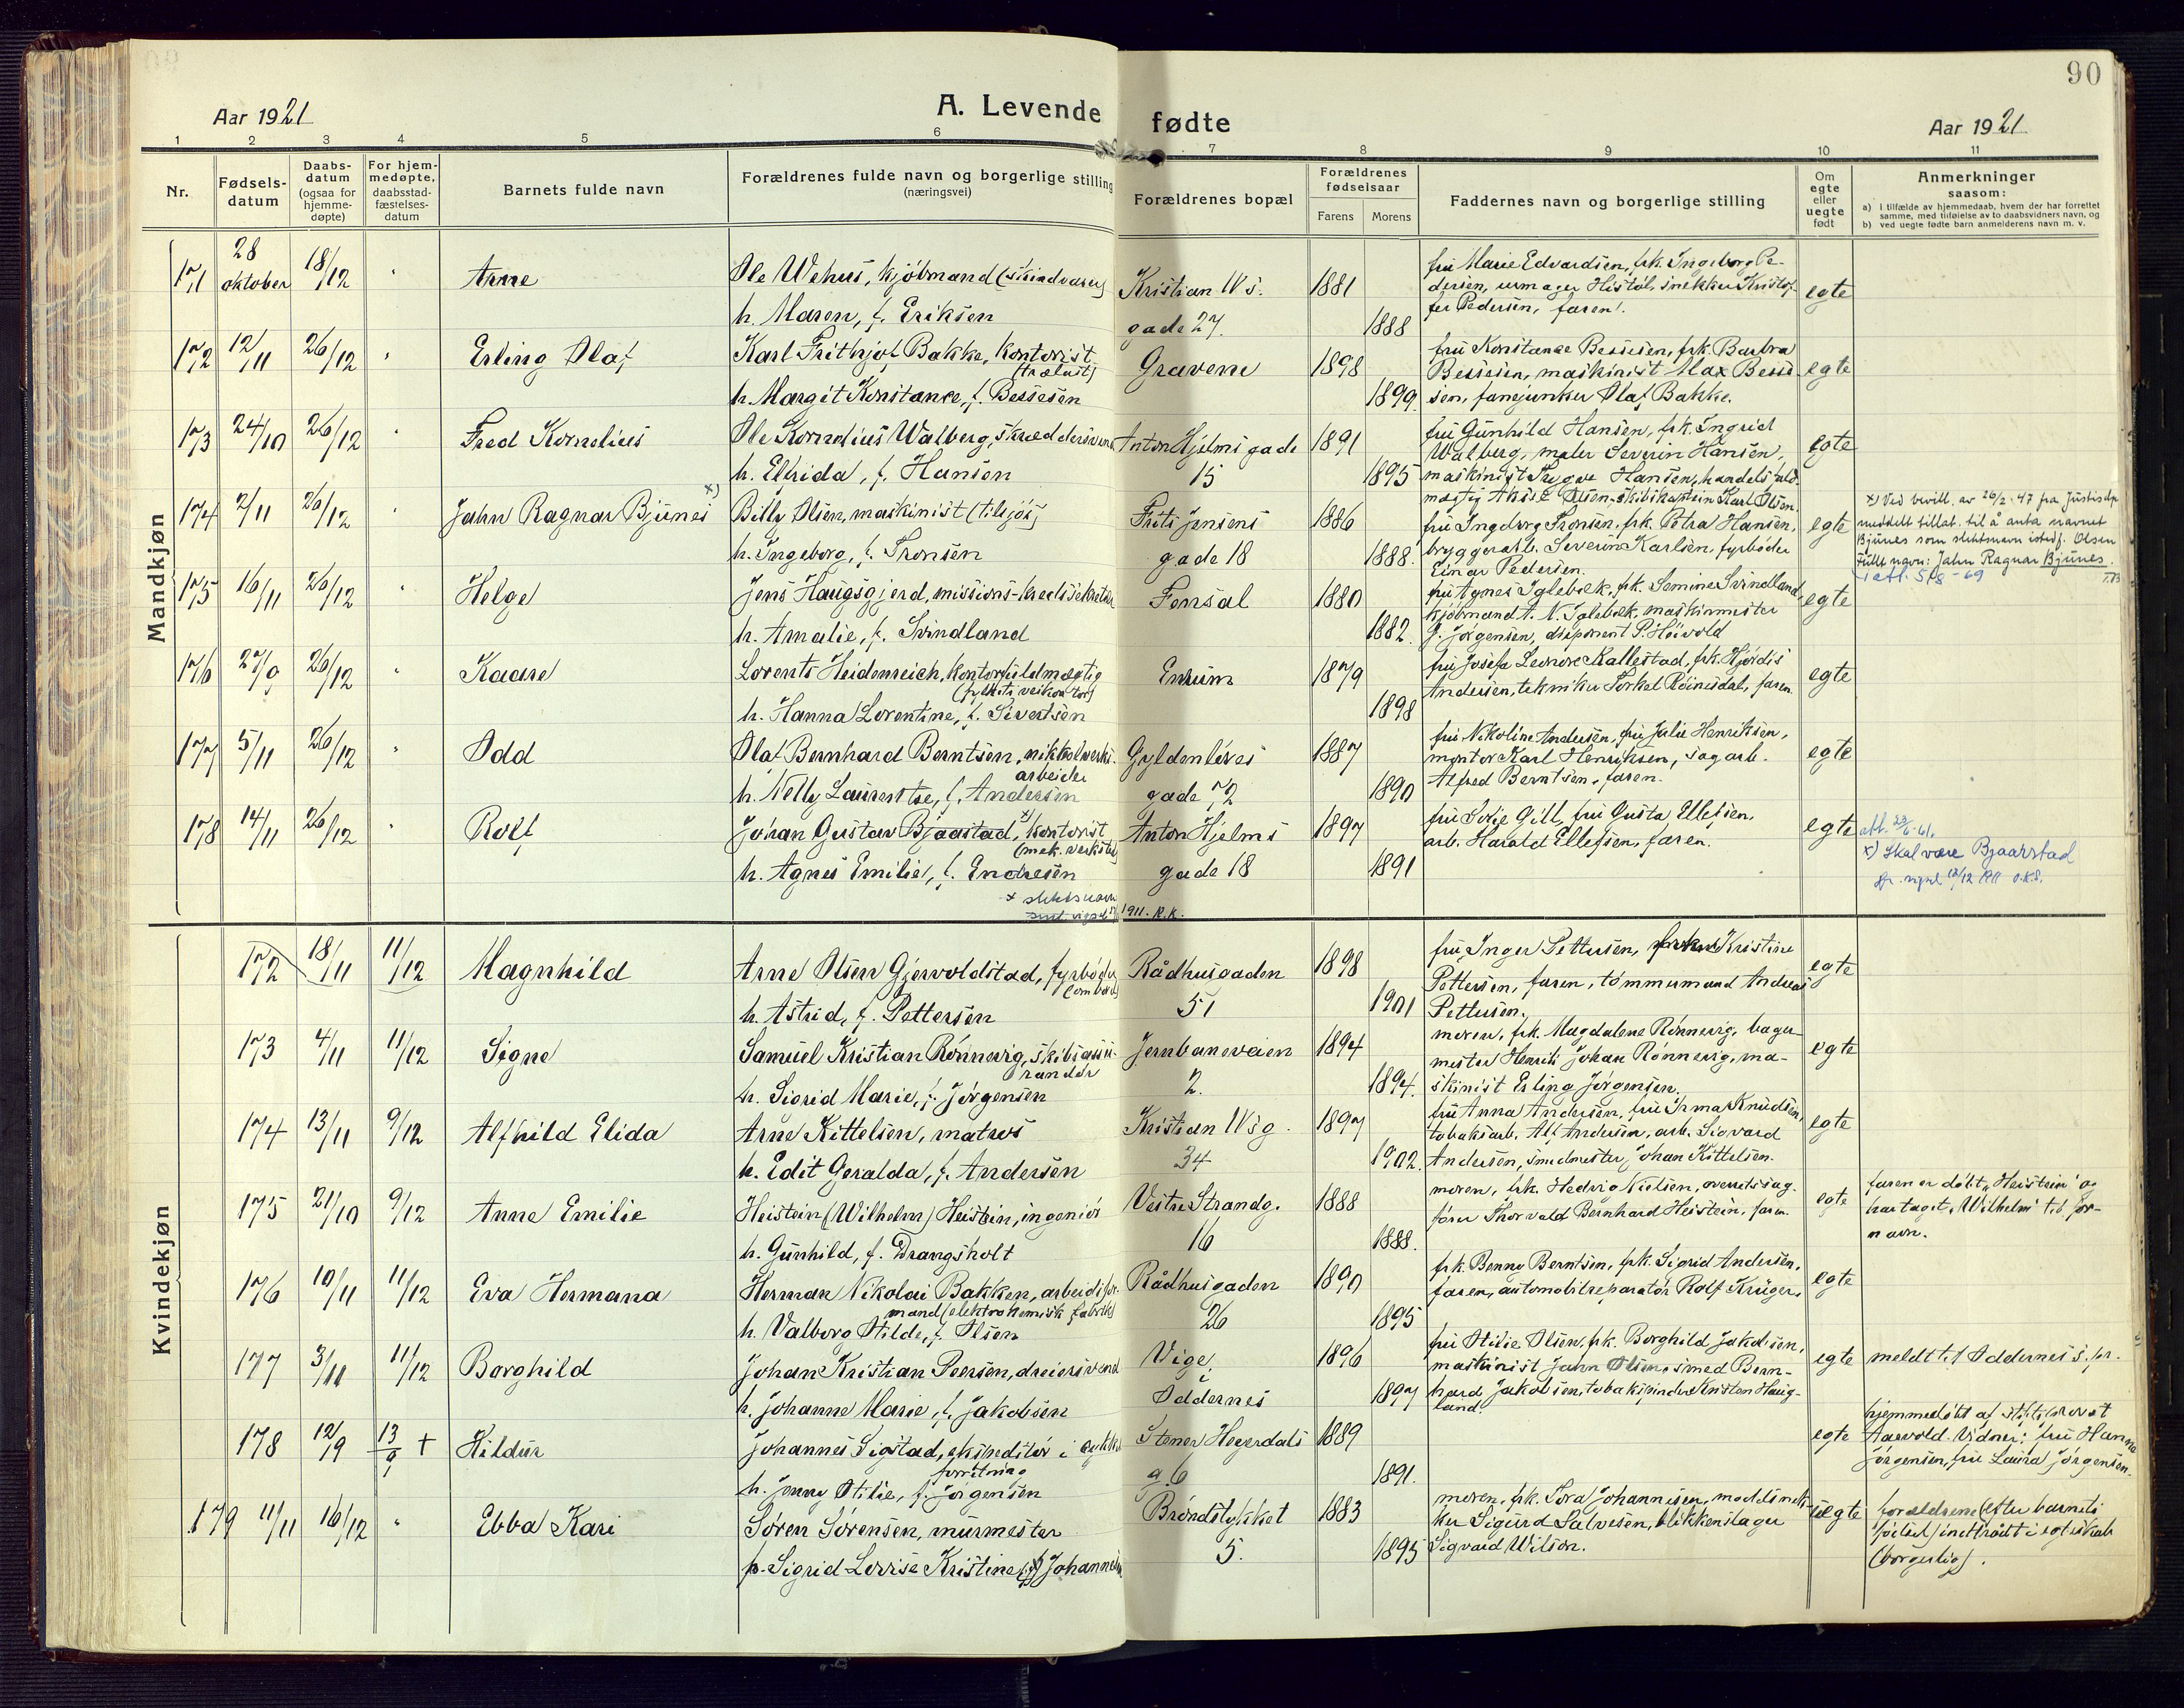 90
Aar 1921
A. Levende fødte
Aar 1921
1 2 3 4 5 6 7 8 9 10 11
Nr.
Fødsels-
datum
Daabs-
datum
(ogsaa for
hjemme-
døpte)
For hjem-
medøpte,
daabsstad-
fæstelses-
datum
Barnets fulde navn
Forældrenes fulde navn og borgerlige stilling
(næringsvei)
Forældrenes bopæl
Forældrenes
fødselsaar
Farens Morens
Faddernes navn og borgerlige stilling
Om
egte
eller
uegte
født
Anmerkninger
saasom:
a) i tilfælde av hjemmedaab, hvem der har forrettet
samme, med tilføielse av to daabsvidners navn, og
b) ved uegte fødte barn anmelderens navn m. v.
Mandkjøn
171 28 oktober 18/12 " Arne
Ole Wehus, kjøbmand (skindvarer)
h. Maren, f. Eriksen
Kristian IVs.
gade 27.
1881
1888
fru Marie Edvardsen, frk. Ingeborg Pe-
dersen, urmager Histøl, snekker Kristof-
fer Pedersen, faren.
egte
172 12/11 26/12 " Erling Olaf
Karl Frithjof Bakke, kontorist
(trælast)
h. Margit Konstance, f. Bessesen
Gravene
1898
1899
fru Konstance Bessesen, frk. Barbra
Bessesen, maskinist Max Besse-
sen, fanejunker Olaf Bakke.
egte
173 24/10 26/12 " Fred Kornelius
Ole Kornelius Walberg, skræddersvend
h. Elfrida, f. Hansen
Anton Hjelms gade
15
1891
1895
fru Gunhild Hansen, frk. Ingrid
Walberg, maler Severin Hansen,
maskinist Trygve Hansen, handelsfuld-
mægtig
egte
174 2/11 26/12 " Jahn Ragnar Bjunes x)
Billy Olsen, maskinist (tilsjøs)
h. Ingeborg, f. Tronsen
Frits Jensens
gade 18
1886
1888.
Olsen, skibskaptein Karl Olsen.
fru Ingeborg Tronsen, frk. Petra Hansen,
bryggeriarb. Severin Karlsen, fyrbøder
Einar Pedersen.
egte
x) Ved bevill. av 26/2-47 fra Justisdp.
meddelt tillat. til å anta navnet
Bjunes som slektsnavn istedf. Olsen
Fullt navn: Jahn Ragnar Bjunes.
175 16/11 26/12 " Helge
Jens Haugsgjerd, missions-kredssekretær
h. Amalie, f. Svindland
Fonsal
1880
1882.
fru Agnes Iglebæk, frk. Semine Svindland,
kjøbmand A. N. Iglebæk, maskinmester
J. Jørgensen, disponent P. Høivold
egte
176 27/9 26/12 " Kaare
Lorents Heidenreich, kontorfuldmægtig
(fylkets veikontor)
h. Hanna Lorentine, f. Sivertsen
Enrum
1879
1898
fru Josefa Leonore Kallestad, frk. Hjørdis
Andersen, tekniker Torkel Røinesdal, faren.
egte
177 5/11 26/12 " Odd
Olaf Bernhard Berntsen, nikkelverks-
arbeider
h. Nelly Laurentse, f. Andersen
Gyldenløves
gade 72
1887
1890
fru Nikoline Andersen, fru Julie Henriksen,
montør Karl Henriksen, sagarb.
Alfred Berntsen, faren.
egte
178 14/11 26/12 " Rolf
Johan Gustav Bjaastad, x) kontorist
(mek. verksted)
h. Agnes Emilie, f. Endresen
x slektsnavn
1911. R.K.
Anton Hjelms
gade 18
1897
1891
fru Sofie Gill, fru Gusta Ellefsen,
arb. Harald Ellefsen, faren.
egte
att. 23/6-61.
x) Skal være Bjaarstad
Kvindekjøn
172 18/11 11/12 Magnhild
Arne Olsen Gjervoldstad, fyrbøder
(ombord)
h. Astrid, f. Pettersen
Rådhusgaden
51
1898
1901
fru Inger Pettersen, frøken Kristine
Pettersen, faren, tømmermand Andreas
Pettersen.
egte
173 4/11 11/12 Signe
Samuel Kristian Rønnevig, skibsassu-
randør
h. Sigrid Marie, f. Jørgensen
Jernbaneveien
2.
1894
1894.
moren, frk. Magdalene Rønnevig, bager-
mester Henrik Johan Rønnevig, ma-
skinist Erling Jørgensen.
egte
174 13/11 9/12 Alfhild Elida
Arne Kittelsen, matros
h. Edit Geralda, f. Andersen
Kristian IVs g.
34
1897
1902.
fru Anna Andersen, fru Irma Knudsen,
tobaksarb. Alf Andersen, arb. Sigvard
Andersen, smedmester Johan Kittelsen.
egte
175 21/10 9/12 Anne Emilie
Heistein (Wilhelm) Heistein, ingeniør
h. Gunhild, f. Drangsholt
Vestre Strandg.
16
1888
1888.
moren, frk. Hedvig Nielsen, overretssag-
fører Thorvald Bernhard Heistein, faren.
egte
faren er døbt „Heistein" og
har taget „Wilhelm" til for-
navn.
176 10/11 11/12 Eva Hermana
Herman Nikolai Bakken, arbeidsfor-
mand (elektrokemisk fabrik)
h. Valborg Otilde, f. Olsen
Rådhusgaden
26
1890
1895
frk. Benny Berntsen, frk. Sigrid Andersen,
faren, automobilreparatør Rolf Krüger.
egte
177 3/11 11/12 Borghild
Johan Kristian Peersen, dreiersvend
h. Johanne Marie, f. Jakobsen
Vige,
Oddernes
1896
1897
fru Otilie Olsen, frk. Borghild Jakobsen,
maskinist Jahn Olsen, smed Bern-
hard Jakobsen, tobakspinder Kristen Haug-
land.
egte
meldt til Oddernes s. pr.
178 12/9 13/9 † Hildur
Johannes Sigstad, ekspeditør i
forretning
h. Jenny Otilie, f. Jørgensen
Stener Heyerdals
g. 6
1889
1891.
egte
hjemmedøbt af stiftsprovst
Aarvold. Vidner: fru Hanna
Jørgensen, fru Laura Jørgensen.
179 11/11 16/12 " Ebba Kari
Søren Sørensen, murmester
p. Sigrid Lovise Kristine Johannesen
Brøndstykket
5.
1883
1895
moren, frk. Tora Johannesen,
Sigurd Salvesen, blikkenslager
Sigvard Wilson.
uegte
forældrene (efter barnets
fødsel) indtraadt i egteskab
(borgerlig).